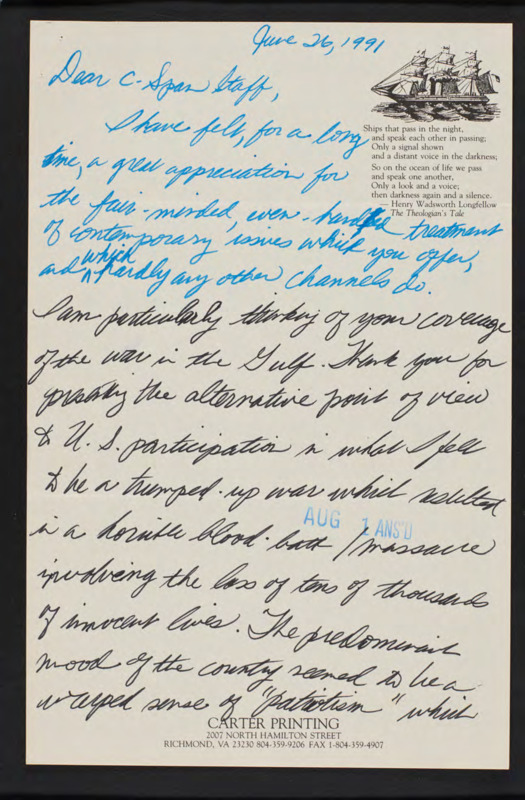 June 26, 1991
Dear C-Span Staff,
Ships that pass in the night,
and speak each other in passing;
Only a signal shown
and a distant voice in the darkness;
So on the ocean of life we pass
and speak one another,
Only a look and a voice;
then darkness again and a silence.
— Henry Wadsworth Longfellow
The Theologian's Tale
I have felt, for a long
time, a great appreciation for
the fair-minded, even-handed treatment
of contemporary issues which you offer,
and which hardly any other channels do.
I am particularly thinking of your coverage
of the war in the Gulf. Thank you for
presenting the alternative point of view
to U.S. participation in what I felt
to be a trumped-up war which resulted
in a horrible blood-bath/massacre
AUG 1 ANS'D
involving the loss of tens of thousands
of innocent lives. The predominant
mood of the country seemed to be a
warped sense of "patriotism" which
CARTER PRINTING
2007 NORTH HAMILTON STREET
RICHMOND, VA 23230 804-359-9206 FAX 1-804-359-4907